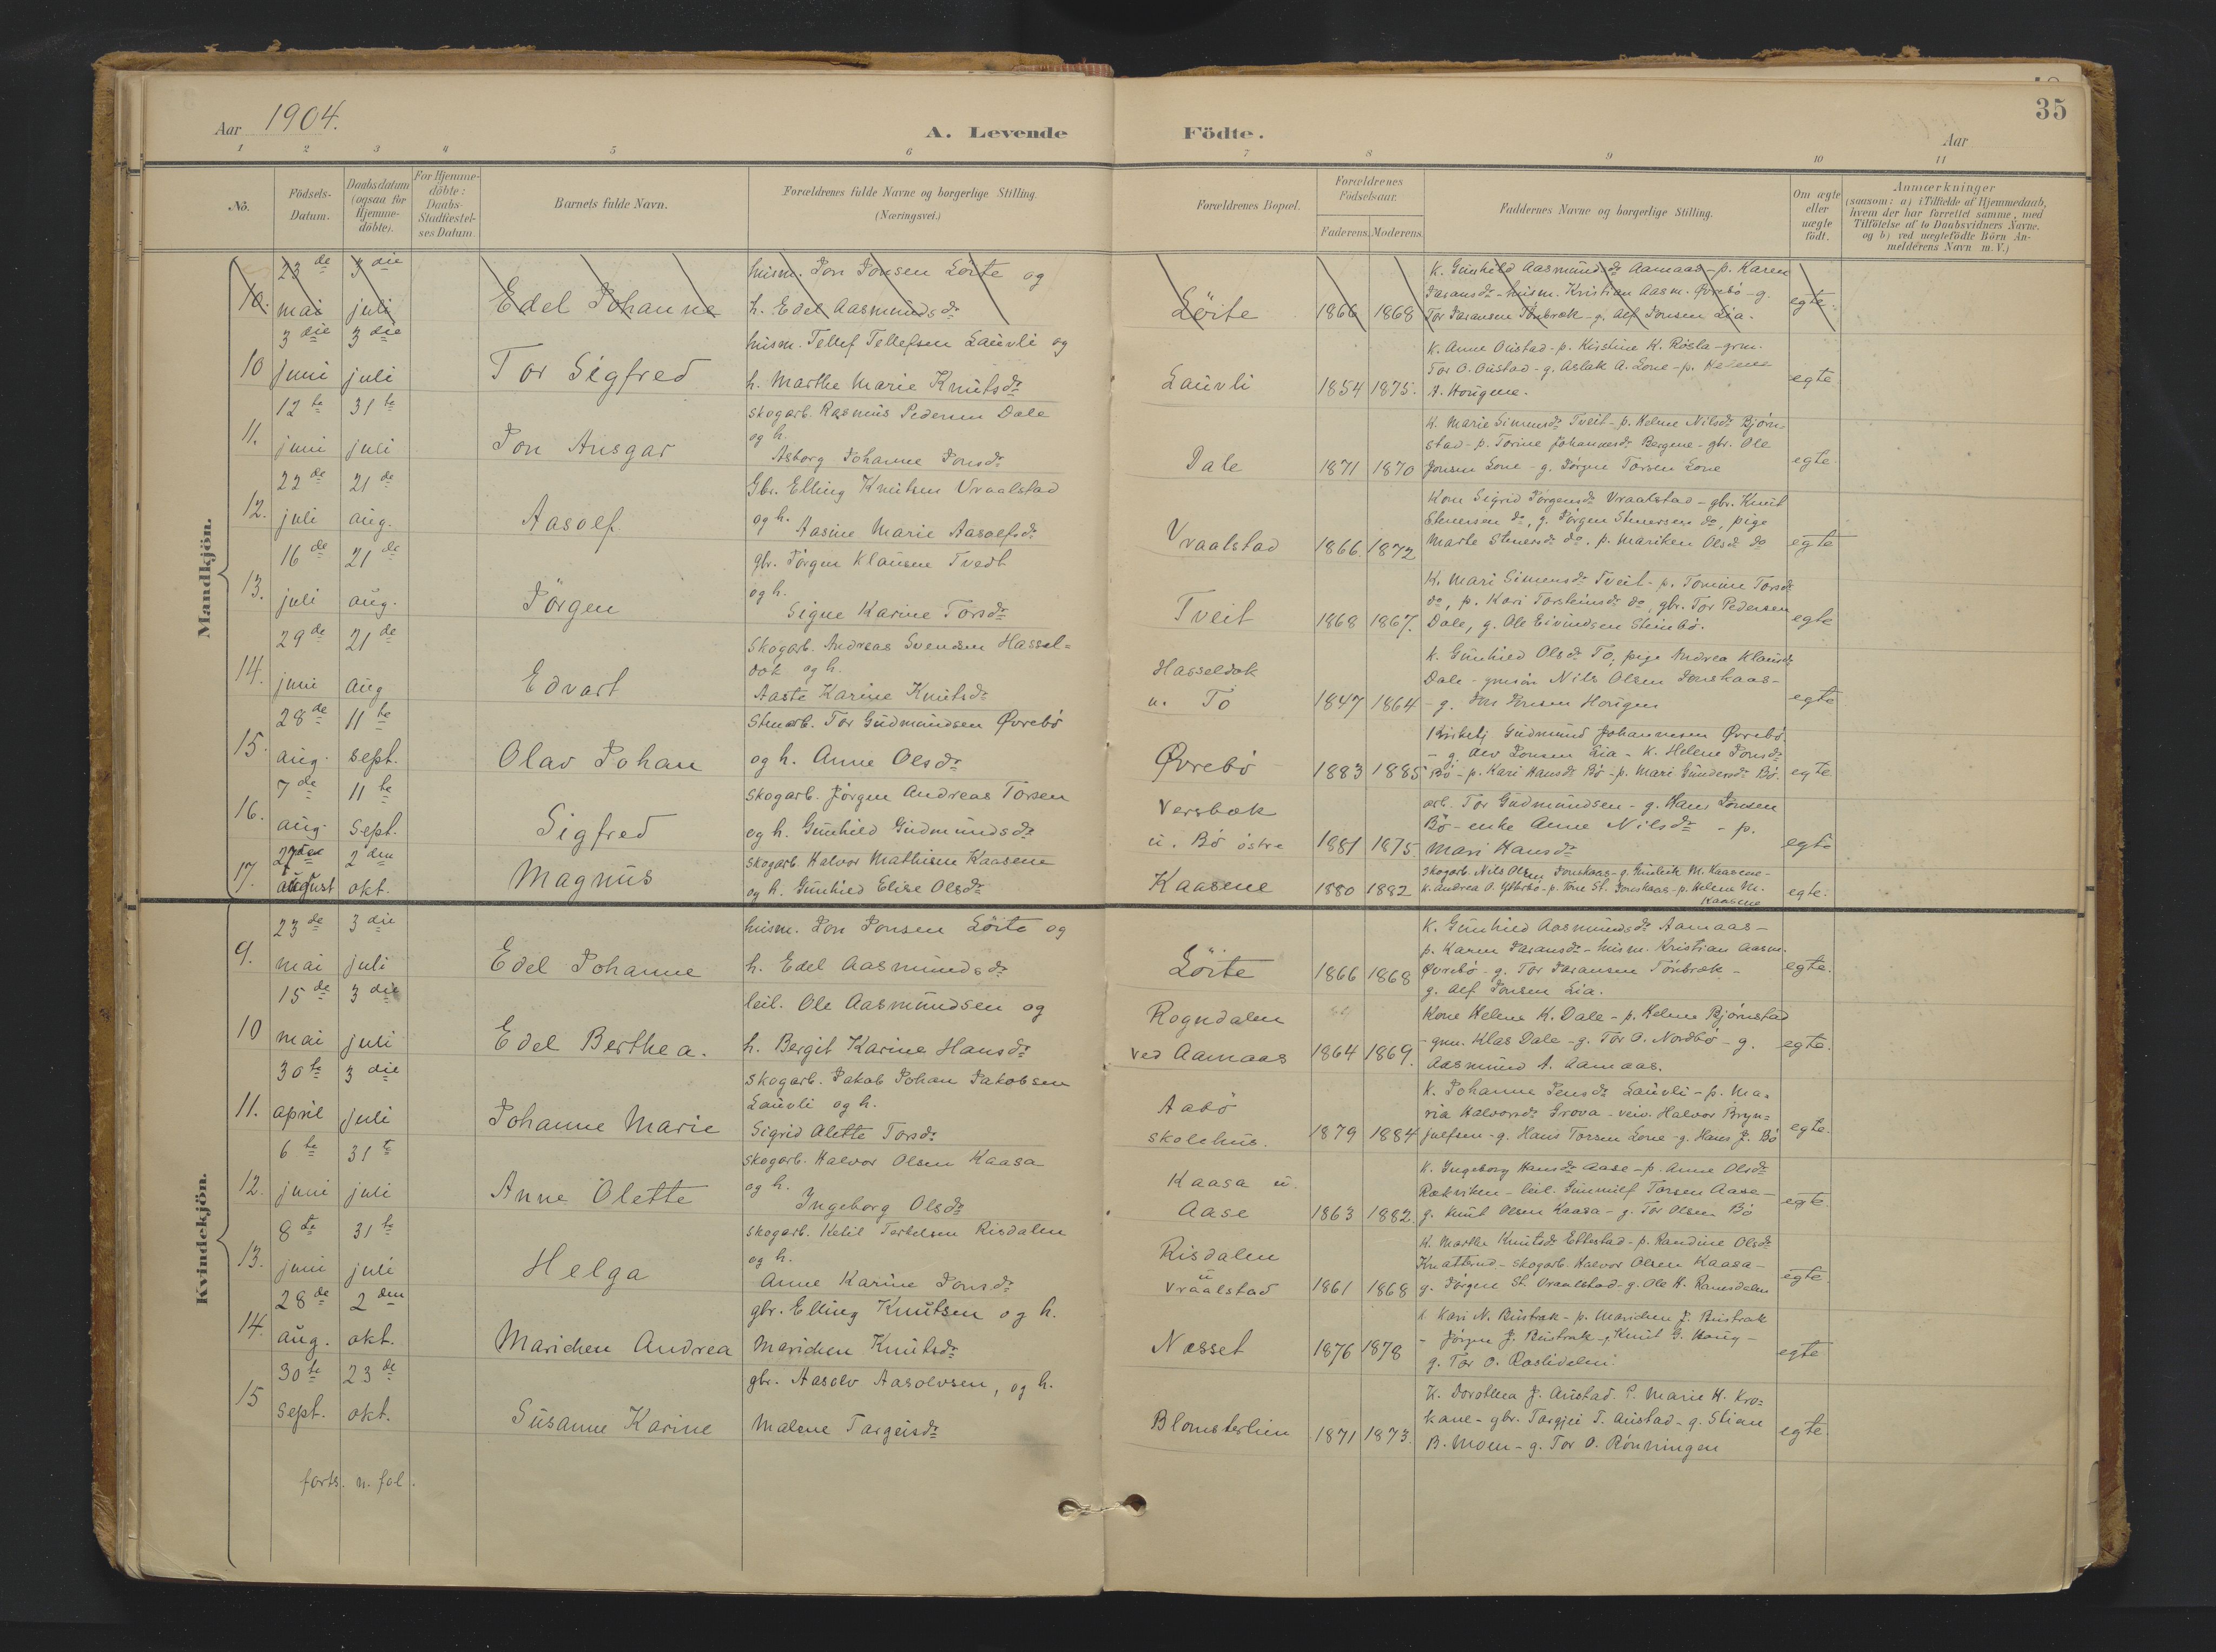 35
Aar 1904.
A. Levende Födte.
Aar
1 2 3 4 5 6 7 8 9 10 11
No.
Födsels-
Datum.
Daabsdatum
(ogsaa for
Hjemme-
döbte).
For Hjemme-
döbte:
Daabs-
Stadfæstel-
ses Datum.
Barnets fulde Navn.
Forældrenes fulde Navne og borgerlige Stilling.
(Næringsvei.)
Forældrenes Bopæl.
Forældrenes
Födselsaar.
Faderens. Moderens.
Faddernes Navne og borgerlige Stilling.
Om ægte
eller
uægte
födt.
Anmærkninger
(saasom: a) i Tilfælde af Hjemmedaab,
hvem der har forrettet samme, med
Tilföielse af to Daabsvidners Navne.
og b) ved uægtefödte Börn An-
melderens Navn m. V.)
Mandkjön.
10. 23de mai 3die juli
Edel Johanne
husm. Jon Jonsen Löite og
h. Edel Aasmundsdr
Löite 1866 1868
K. Gunhild Aasmundsdr Aamaas - p. Karen
Jaransdr - husm. Kristian Aasm. Øvrebö - g.
Tor Jaransen Tönbræk - g. Alf Jonsen Lia.
egte.
10 3die Juni 3die juli
Tor Sigfred
husm. Tellef Tellefsen Lauvli og
h. Marthe Marie Knutsdr
Lauvli 1854 1875.
K. Anne Oustad - p. Kirstine K. Røsla - grm.
Tor O. Oustad - g. Aslak A. Lone - p. Helene
A. Hougene.
egte
11. 12te juni 31te juli
Jon Ansgar
skogarb. Rasmus Pedersen Dale
og h.
Asborg Johanne Jonsdr
Dale 1871 1870
K. Marie Simensdr Tveit - p. Helene Nilsdr Bjørn-
stad - p. Torine Johannesdr Bergene - gbr. Ole
Jonsen Lone - g. Jörgen Torsen Lone
egte
12. 22de juli 21de aug.
Aasolf
Gbr. Elling Knutsen Vraalstad
og h. Aasine Marie Aasolfsdr
Vraalstad 1866. 1872
Kone Sigrid Jörgensdr Vraalstad - gbr. Knut
Stenersen do, g. Jörgen Stenersen do, pige
Marte Stenersdr do. p. Mariken Olsdr do
egte
13. 16de juli 21de aug.
Jörgen
gbr. Jörgen Klausen Tvedt
og h.
Signe Karine Torsdr
Tveit 1868 1867.
K. Mari Simensdr Tveit - p. Tomine Torsdr
do, p. Kari Torsteinsdr do, gbr. Tor Pedersen
Dale, g. Ole Eivindsen Steinbö.
egte
14. 29de juni 21de aug
Edvart
Skogarb. Andreas Svendsen Hassel=
dok og h.
Aaste Karine Knutsdr
Hasseldok
u. To 1847 1864
K. Gunhild Olsdr To, pige Andrea Klausdr
Dale - gmsøn Nils Olsen Jonskaas -
- g. Jon Jonsen Hougen
egte
15. 28de aug. 11te sept.
Olav Johan
Stenarb. Tor Gudmundsen Øvrebö
og h. Anne Olsdr
Øvrebö 1883 1885
Gudmund Johannesen Øvrebö
- g. Alv Jonsen Lia - K. Helene Jonsdr
Bö - p. Kari Hansdr Bö - p. Mari Gundersdr Bö.
egte
16. 7de aug. 11te Sept.
Sigfred
skogarb. Jörgen Andreas Torsen
og h. Gunhild Gudmundsdr
Versbæk
u. Bö östre 1881 1875
arb. Tor Gudmundsen - g. Hans Jonsen
Bö - enke Anne Nilsdr - p.
Mari Hansdr
egte
17. 27de august 2den okt.
Magnus
skogarb. Halvor Mathisen Kaasene
og h. Gunhild Elise Olsdr
Kaasene 1880 1882
Skogarb. Nils Olsen Jonskaas - g. Gunleik M. Kaasene -
k. Andrea O. - p. Tone St. Jonskaas - p. Helene M.
Kaasene
egte.
Kvindekjön.
9. 23de mai 3die juli
Edel Johanne
husm. Jon Jonsen Löite og
h. Edel Aasmundsdr
Löite 1866 1868
K. Gunhild Aasmundsdr Aamaas -
p. Karen Jaransdr - husm. Kristian Aasm.
Øvrebö - g. Tor Jaransen Tönbræk -
g. Alf Jonsen Lia.
egte.
10 15de mai 3die juli
Edel Berthea.
leil. Ole Aasmundsen og
h. Bergit Karine Hansdr
Rogndalen
ved Aamaas 1864 1869.
Kone Helene K. Dale - p. Helene Bjørnstad
- gmn. Klas Dale - g. Tor O. Nordbö - g.
Aasmund A. Aamaas.
egte.
11. 30te april 3die juli
Johanne Marie
skogarb. Jakob Johan Jakobsen
Lauvli og h.
Sigrid Alette Torsdr
Aabö
skolehus. 1879 1884
K. Johanne Jensdr Lauvli - p. Ma-
ria Halvorsdr Grova - veiv. Halvor Bryn=
julfsen - g. Hans Torsen Lone - g. Hans J. Bö
egte.
12. 6te juni 31te juli
Anne Olette
skogarb. Halvor Olsen Kaasa
og h.
Ingeborg Olsdr
Kaasa u.
Aase 1863 1882.
K. Ingeborg Hansdr Aase - p. Anne Olsdr
Rækviken - leil. Gunnulf Torsen Aase -
g. Knut Olsen Kaasa - g. Tor Olsen Bö
egte
13. 8de juni 31te juli
Helga
skogarb. Ketil Terkelsen Risdalen
og h.
Anne Karine Jonsdr
Risdalen
u
Vraalstad 1861 1868
K. Marthe Knutsdr Ettestad - p. Randine Olsdr
Knatterud - skogarb. Halvor Olsen Kaasa -
g. Jörgen St. Vraalstad - g. Ole H. Ramsdalen
egte
14. 28de aug. 2den okt.
Marichen Andrea
gbr. Elling Knutsen og h.
Marichen Knutsdr
Næsset 1876 1878
K Kari N. Bustrak - p. Marichen J. Bustrak
- Jörgen J. Bustrak - Knut G. Haug -
g. Tor O. Røslidalen
egte
15 30te Sept. 23de okt.
Susanne Karine
gbr. Aasolv Aasolvsen, og h.
Malene Targeisdr
Blomsterlien 1871 1873.
K. Dorothea J. Austad. P. Marie H. Kro=
kane - gbr. Targjei T. Austad - g. Stian
B. Moen - g. Tor O. Rönningen
egte.
forts. n. fol.